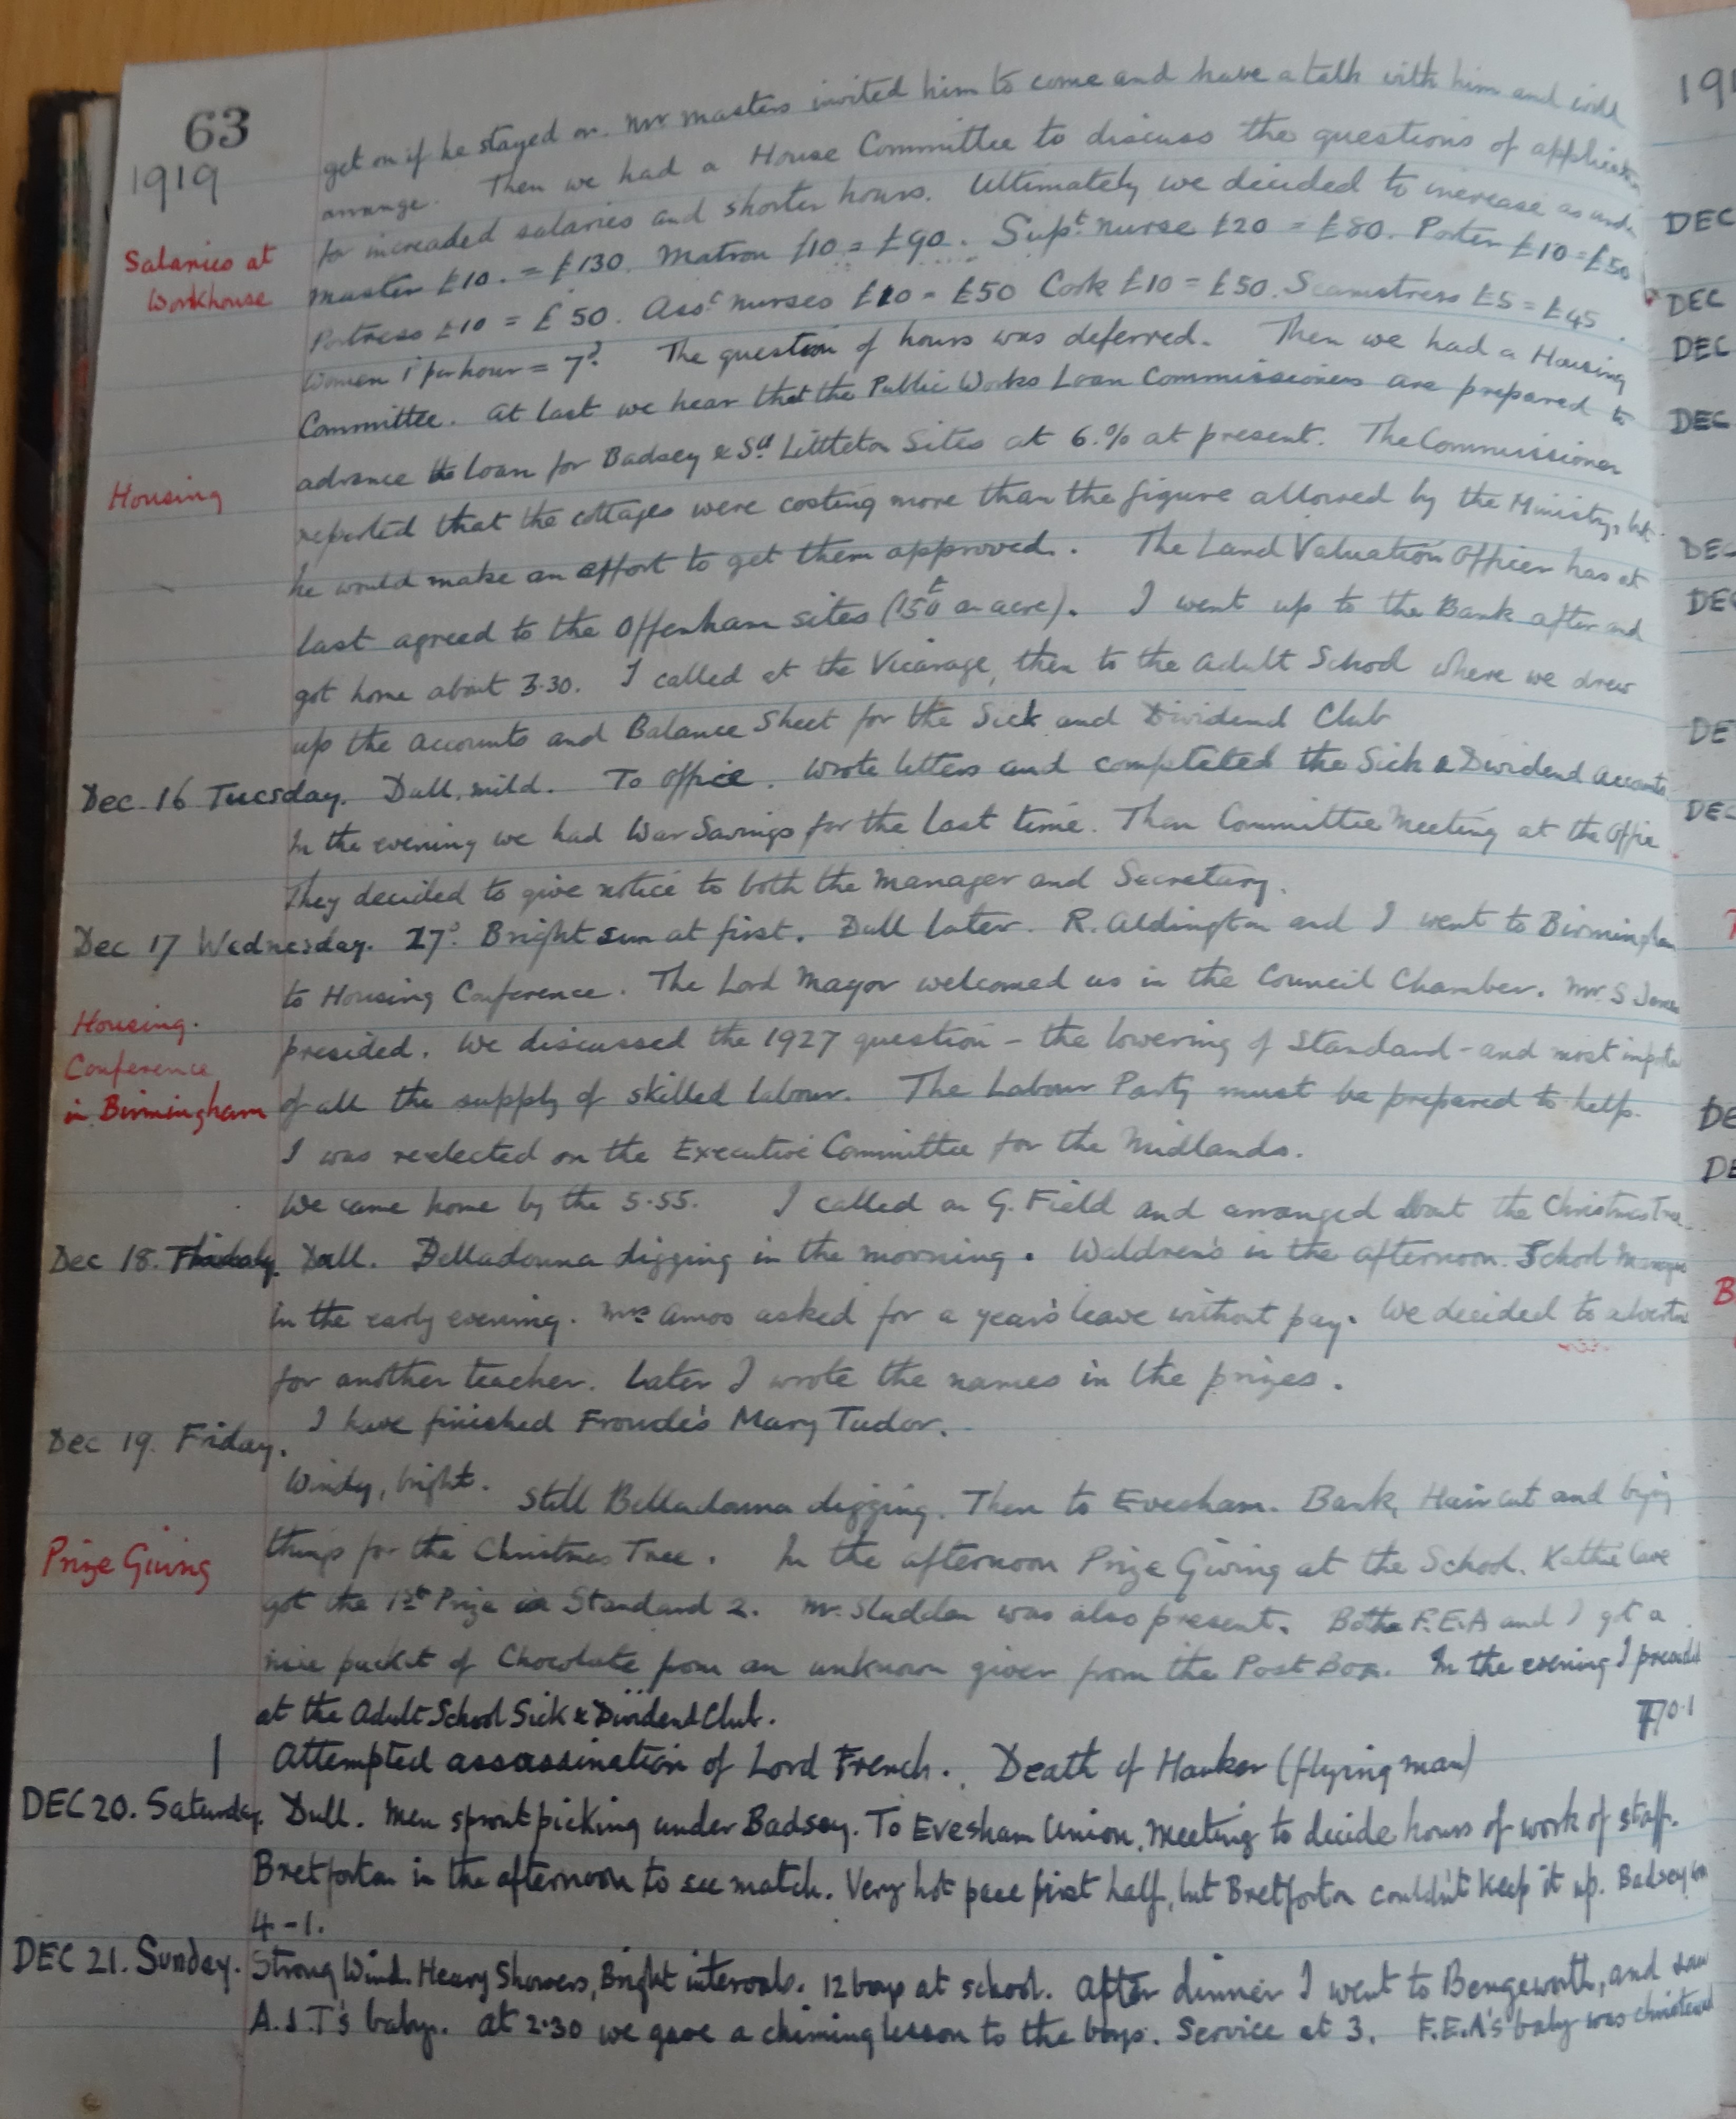 63
1919
get on if he stayed on. Mr Masters invited him to come and have a talk with him and will
arrange. Then we had a House Committee to discuss the questions of application
for increased salaries and shorter hours. Ultimately we decided to increase as under
Salaries at
Workhouse
Master £10. = £130. Matron £10 = £90. Supt. nurse £20 = £80. Porter £10 = £50
Portress £10 = £50. Asst. nurses £10 = £50 Cook £10 = £50. Seamstress £5 = £45.
Women 1d per hour = 7d. The question of hours was deferred. Then we had a Housing
Committee. At last we hear that the Public Works Loan Commissioners are prepared to
Housing
advance the loan for Badsey & Sth Littleton Sites at 6.% at present. The Commissioner
reported that the cottages were costing more than the figure allowed by the Ministry, but
he would make an effort to get them approved. The Land Valuation Officer has at
last agreed to the Offenham sites (150£ an acre). I went up to the Bank after and
got home about 3.30. I called at the Vicarage, then to the Adult School where we drew
up the accounts and Balance Sheet for the Sick and Dividend Club
Dec. 16 Tuesday. Dull, mild. To office. Wrote letters and completed the Sick & Dividend accounts
In the evening we had War Savings for the last time. Then Committee Meeting at the Office
They decided to give notice to both the Manager and Secretary.
Dec 17 Wednesday. 27°. Bright sun at first. Dull later. R. Aldington and I went to Birmingham
to Housing Conference. The Lord Mayor welcomed us in the Council Chamber. Mr. S Jones
Housing.
Conference
in Birmingham
presided. We discussed the 1927 question - the lowering of Standard - and most important
of all the supply of skilled labour. The Labour Party must be prepared to help.
I was reelected on the Executive Committee for the Midlands.
We came home by the 5.55. I called on G. Field and arranged about the Christmas Tree.
Dec 18. Thursday. Dull. Belladonna digging in the morning. Waldren's in the afternoon. School Managers
in the early evening. Mrs Amos asked for a year's leave without pay. We decided to advertise
for another teacher. Later I wrote the names in the prizes.
I have finished Froude's Mary Tudor.
Dec 19. Friday.
Windy, bright. Still Belladonna digging. Then to Evesham. Bank, Hair cut and buying
Prize Giving
things for the Christmas Tree. In the afternoon Prize Giving at the School. Kathie Cave
got the 1st Prize in Standard 2. Mr. Sladden was also present. Both F.E.A and I got a
nice packet of Chocolate from an unknown giver from the Post Box. In the evening I presided
at the Adult School Sick & Dividend Club.
Attempted assassination of Lord French. Death of Hawker (flying man)
DEC 20. Saturday. Dull. Men sprout picking under Badsey. To Evesham Union, meeting to decide hours of work of staff.
Bretforton in the afternoon to see match. Very hot pace first half, but Bretforton couldn't keep it up. Badsey won
4-1.
DEC 21. Sunday. Strong Wind. Heavy Showers, Bright intervals. 12 boys at school. After dinner I went to Bengeworth, and saw
A.J.T's baby. At 2.30 we gave a chiming lesson to the boys. Service at 3. F.E.A's baby was christened